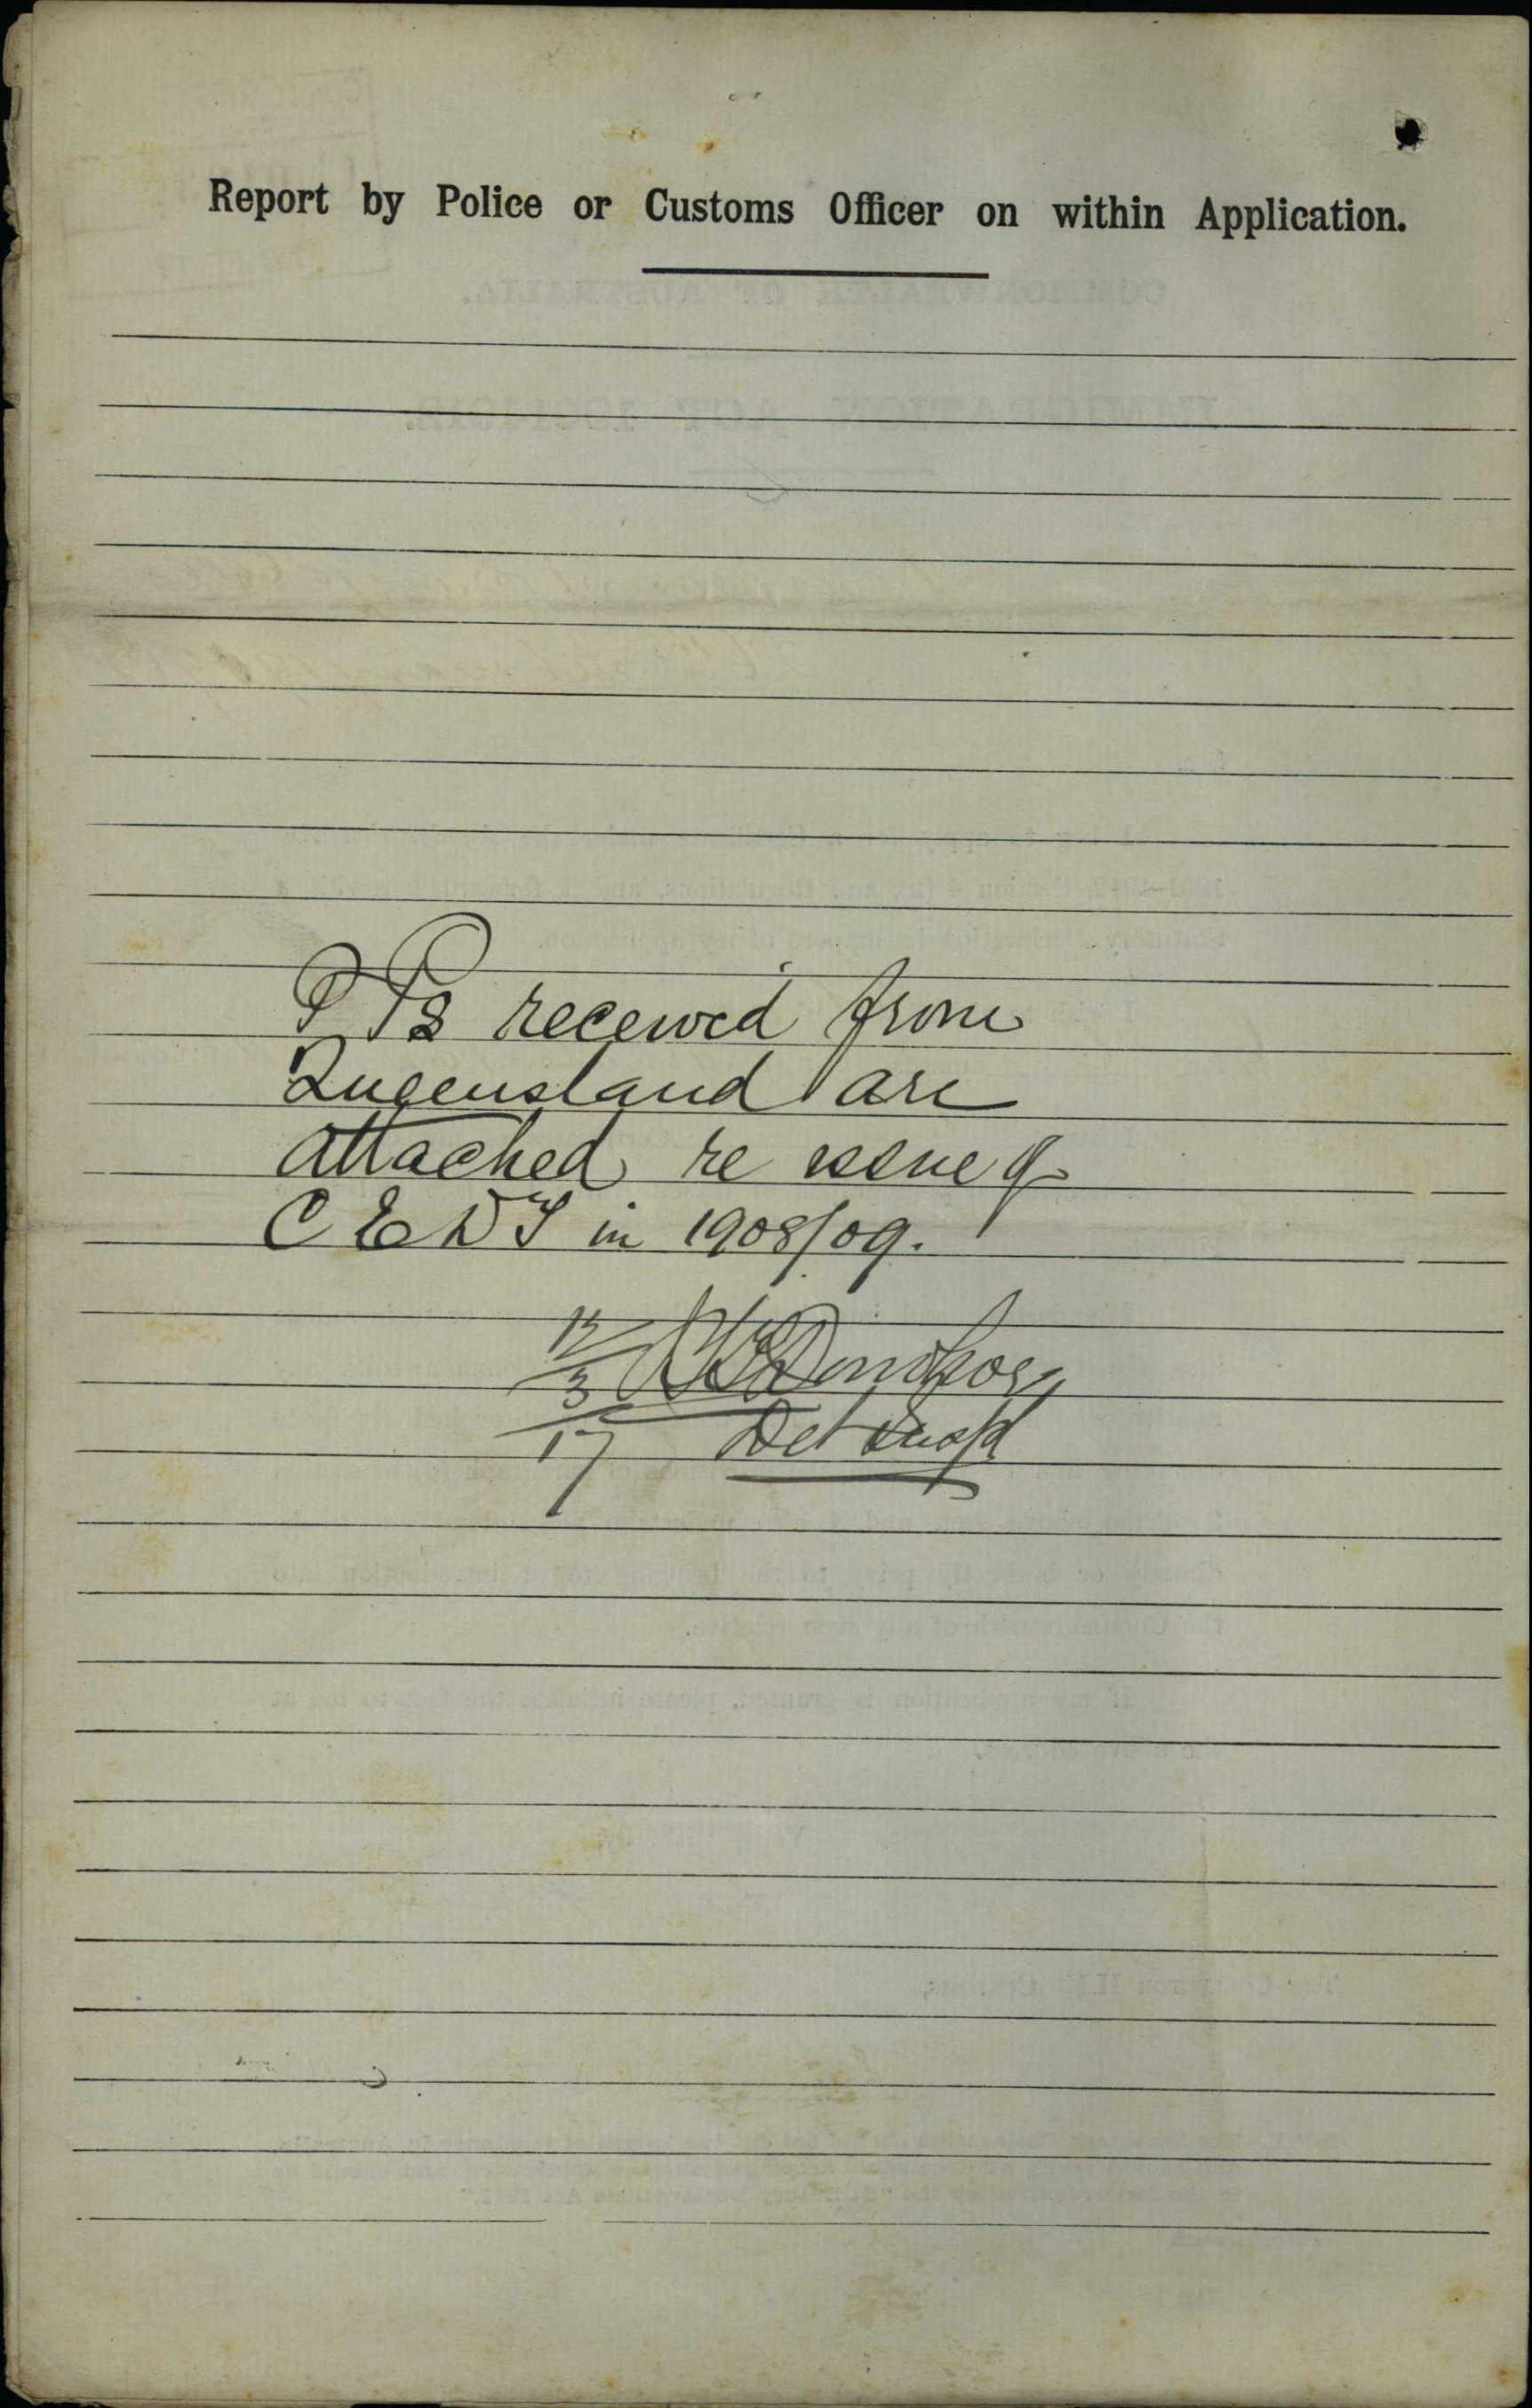 Report by Police or Customs Officer on within Application.
P Ps received from
Queensland are
attached re issue of
C E D T in 1908/09.
Donohoe
12/3/17 Det Inspr